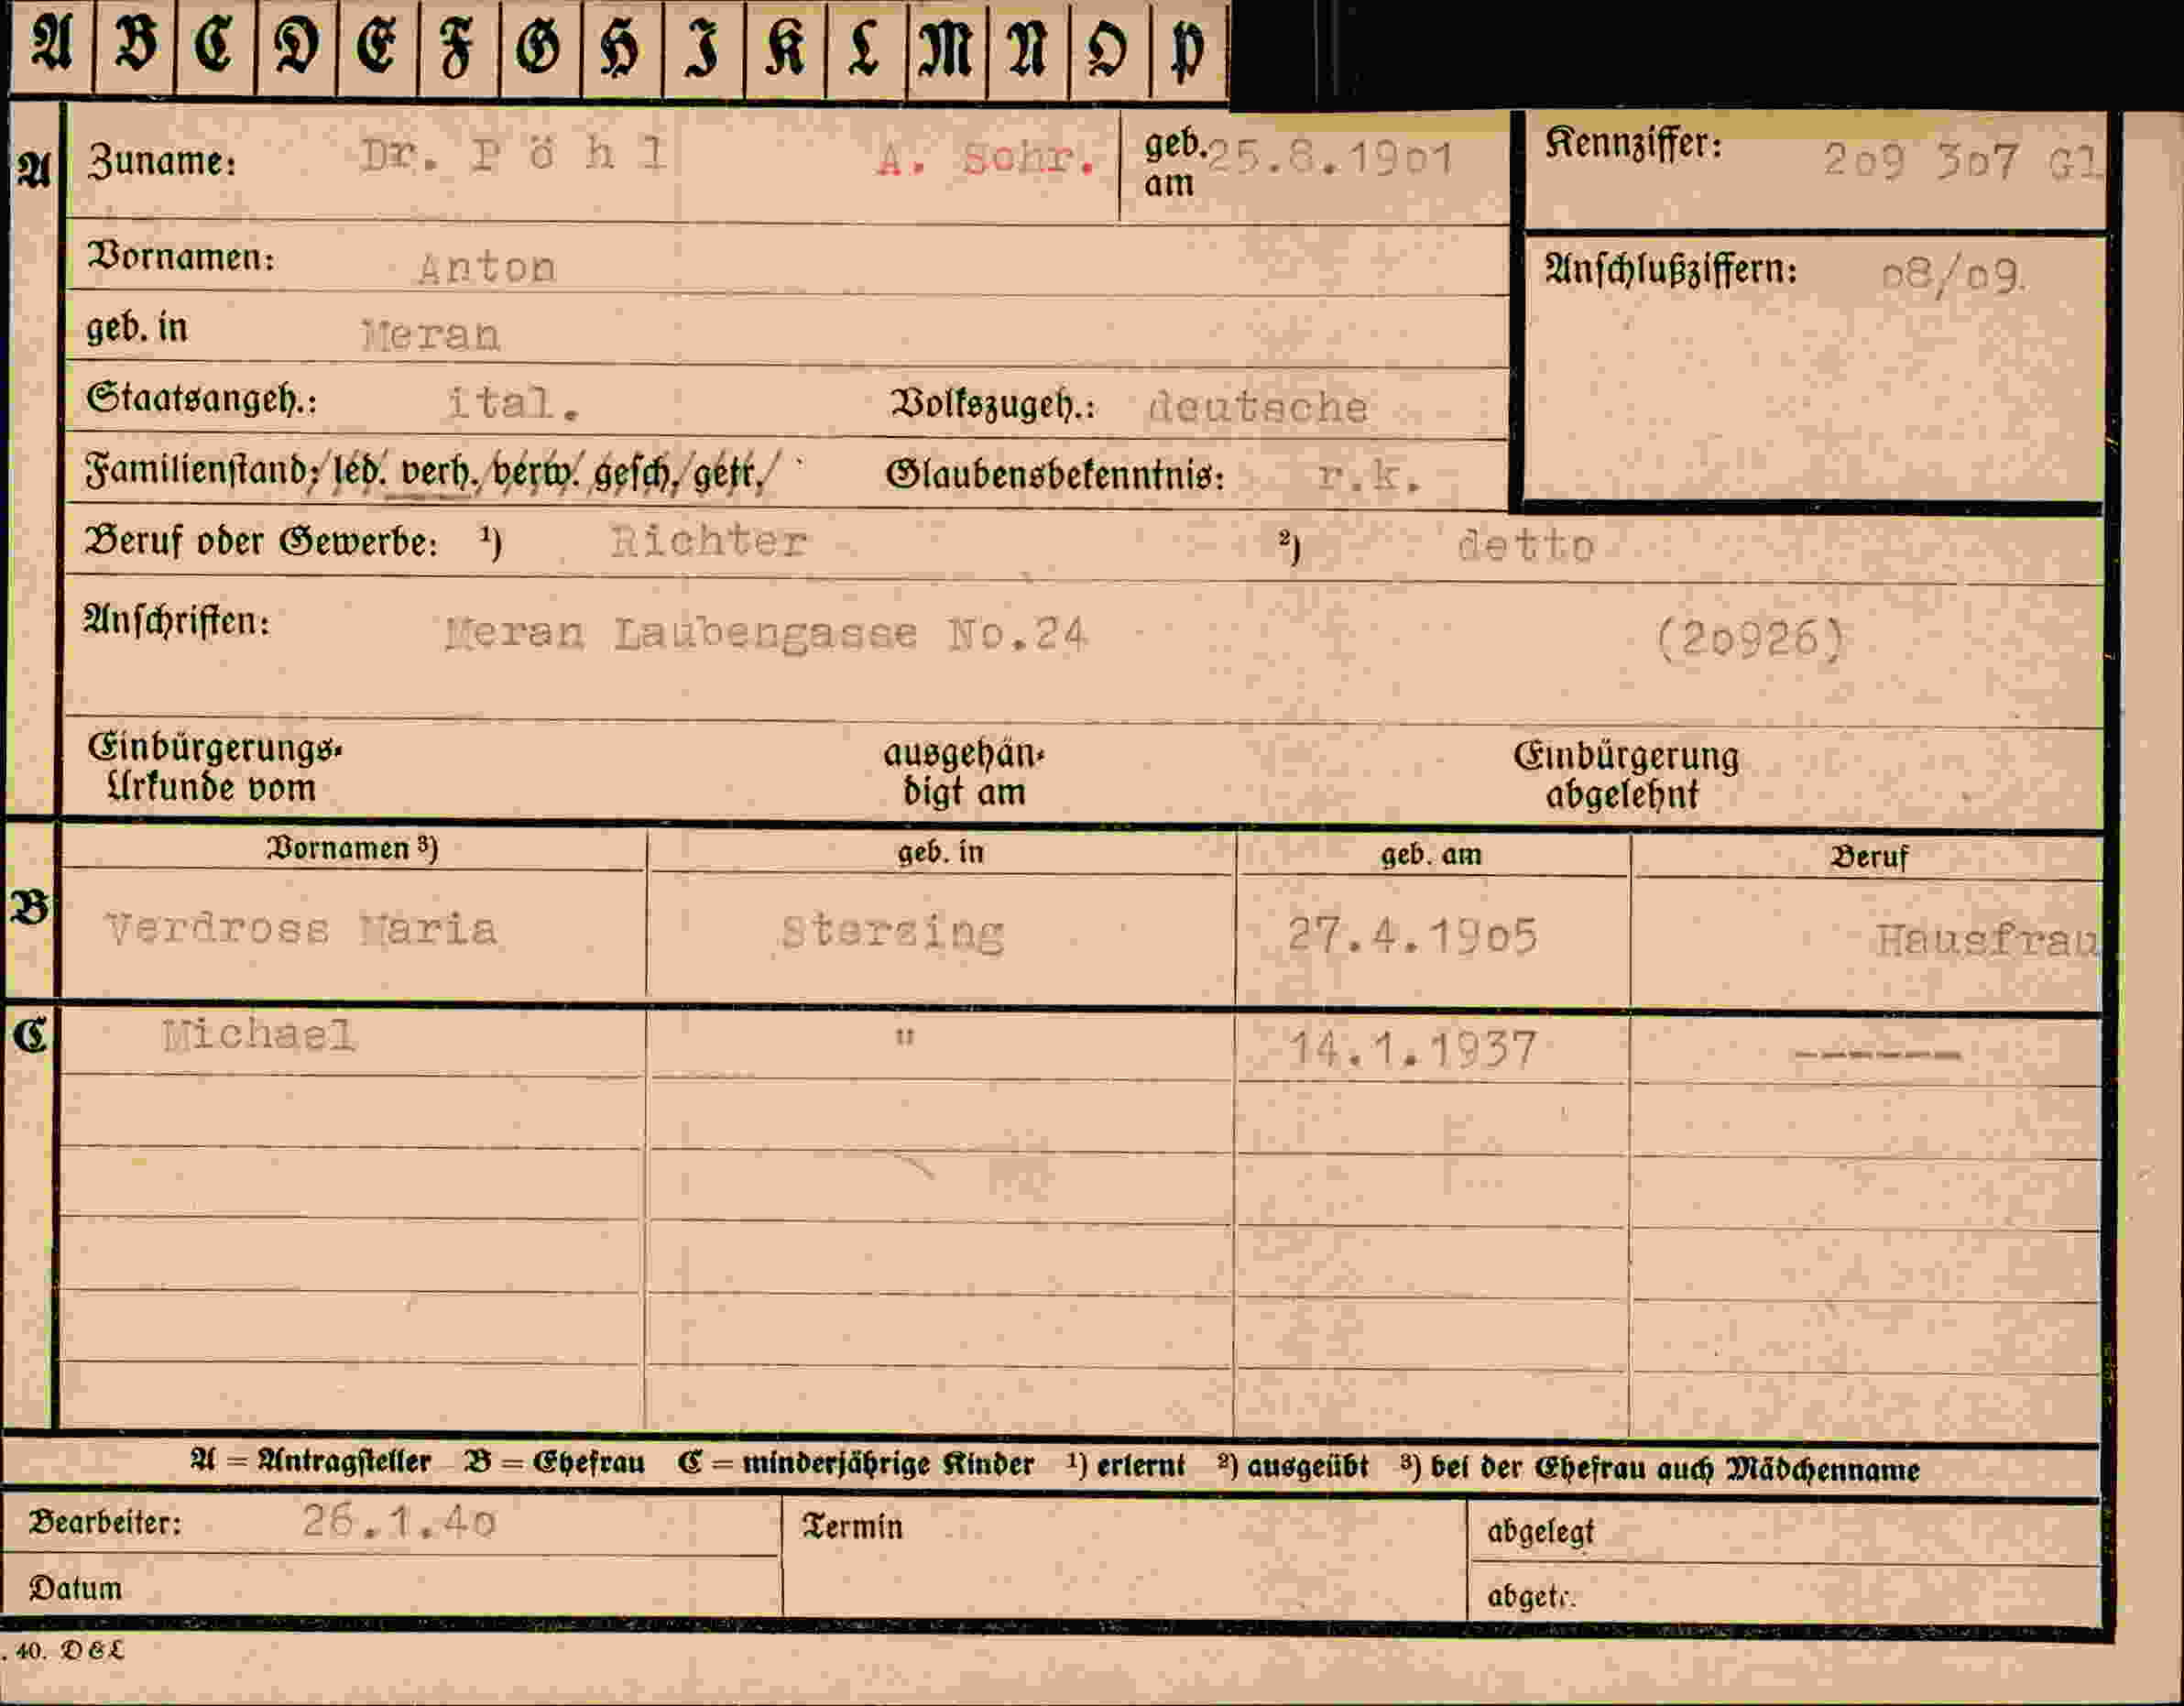 A B C D E F G H I K L M N O P
A Zuname: Dr. P ö h l A. Schr. geb. am 25.8.1901 Kennziffer: 209 307 G1
Vornamen: Anton Anschlußziffern: 08/09.
geb. in Meran
Staatsangeh.: ital. Volkszugeh.: deutsche
Familienstand: led. verh. verw. gesch. getr. Glaubensbekenntnis: r.k.
Beruf oder Gewerbe: ¹) Richter ²) detto
Anschriften: Meran Laubengasse No.24 (20926)
Einbürgerungs- ausgehän- Einbürgerung
Urkunde vom digt am abgelehnt
Vornamen ³) geb. in geb. am Beruf
B Verdross Maria Sterzing 27.4.1905 Hausfrau
C Michael " 14.1.1937 ------
A = Antragsteller B = Ehefrau C = minderjährige Kinder ¹) erlernt ²) ausgeübt ³) bei der Ehefrau auch Mädchenname
Bearbeiter: 26.1.40 Termin abgelegt
Datum abgetr.
. 40. DGL